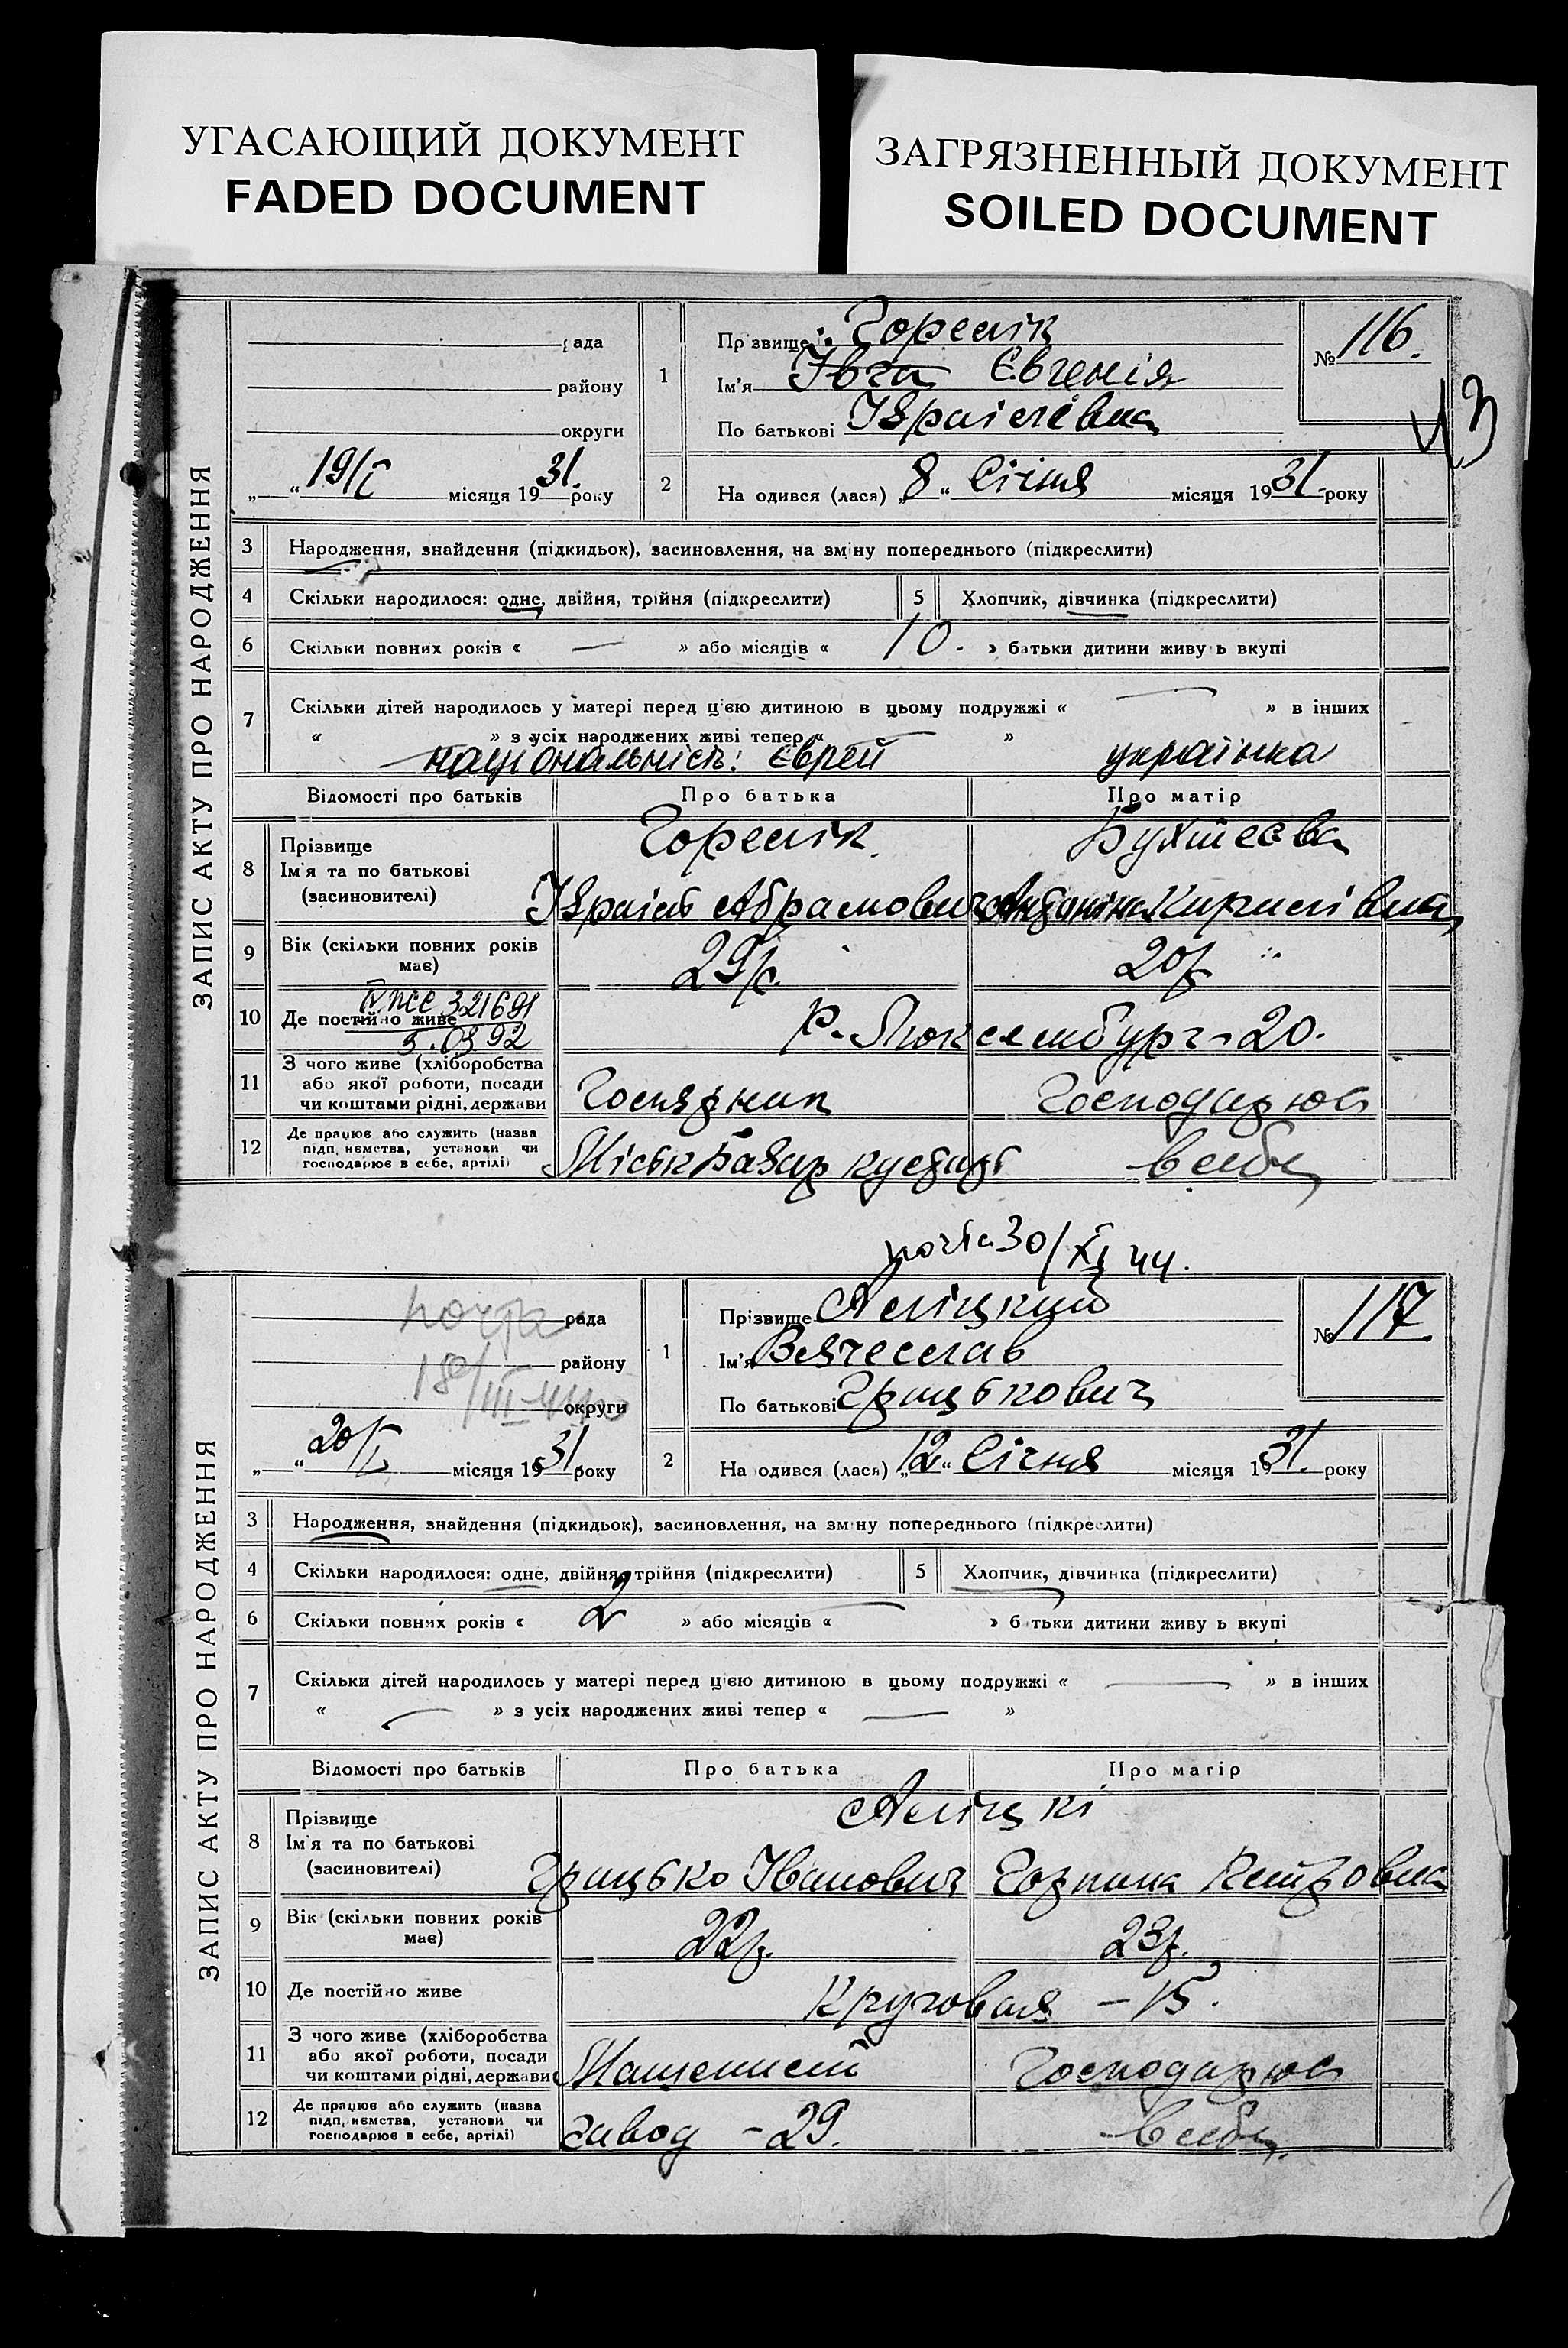 УГАСАЮЩИЙ ДОКУМЕНТ
FADED DOCUMENT
ЗАГРЯЗНЕННЫЙ ДОКУМЕНТ
SOILED DOCUMENT
ЗАПИС АКТУ ПРО НАРОДЖЕННЯ
рада
району
округи
„ “ 19/I місяця 1931. року
1
Прізвище Горелік
Ім'я Івга Євгенія
По батькові Ізраілєвна
№ 116.
43
2 На одився (лася) „8“ Січня місяця 1931. року
3 Народження, знайдення (підкидьок), засиновлення, на зміну попереднього (підкреслити)
4 Скільки народилося: одне, двійня, трійня (підкреслити)
5 Хлопчик, дівчинка (підкреслити)
6 Скільки повних років « — » або місяців « 10. » батьки дитини живу ь вкупі
7 Скільки дітей народилось у матері перед цією дитиною в цьому подружжі « — » в інших
« — » з усіх народжених живі тепер « — »
національність: єврей українка
Відомості про батьків Про батька Про матір
8 Прізвище
Ім'я та по батькові
(засиновителі)
Горелік.
Ізраіль Абрамович
Бухтєєва
Антоніна Кирилівна
9 Вік (скільки повних років має) 29р. 20р.
10 Де постійно живе Р. Люксембург-20.
321691
11 З чого живе (хліборобства
або якої роботи, посади
чи коштами рідні, держави
Господарює
12 Де працює або служить (назва
підп иємства, установи чи
господарює в себе, артілі)
Міськ Базар кустар
в себе
почта 30/XI 44.
ЗАПИС АКТУ ПРО НАРОДЖЕННЯ
почта
рада
району
округи
„ “ 20/I місяця 1931 року
1
Прізвище Аліцкий
Ім'я Вячеслав
По батькові Грицькович
№ 117.
2 На одився (лася) „12“ Січня місяця 1931. року
3 Народження, знайдення (підкидьок), засиновлення, на зміну попереднього (підкреслити)
4 Скільки народилося: одне, двійня, трійня (підкреслити)
5 Хлопчик, дівчинка (підкреслити)
6 Скільки повних років « 2 » або місяців « — » б тьки дитини живу ь вкупі
7 Скільки дітей народилось у матері перед цією дитиною в цьому подружжі « — » в інших
« — » з усіх народжених живі тепер « — »
Відомості про батьків Про батька Про матір
8 Прізвище
Ім'я та по батькові
(засиновителі)
Аліцкі
Грицько Іванович Горпина Петровна
9 Вік (скільки повних років має) 22р. 23р.
10 Де постійно живе Круговая – 15.
11 З чого живе (хліборобства
або якої роботи, посади
чи коштами рідні, держави
Машеніст Господарює
12 Де працює або служить (назва
підп иємства, установи чи
господарює в себе, артілі)
завод – 29. в себе.